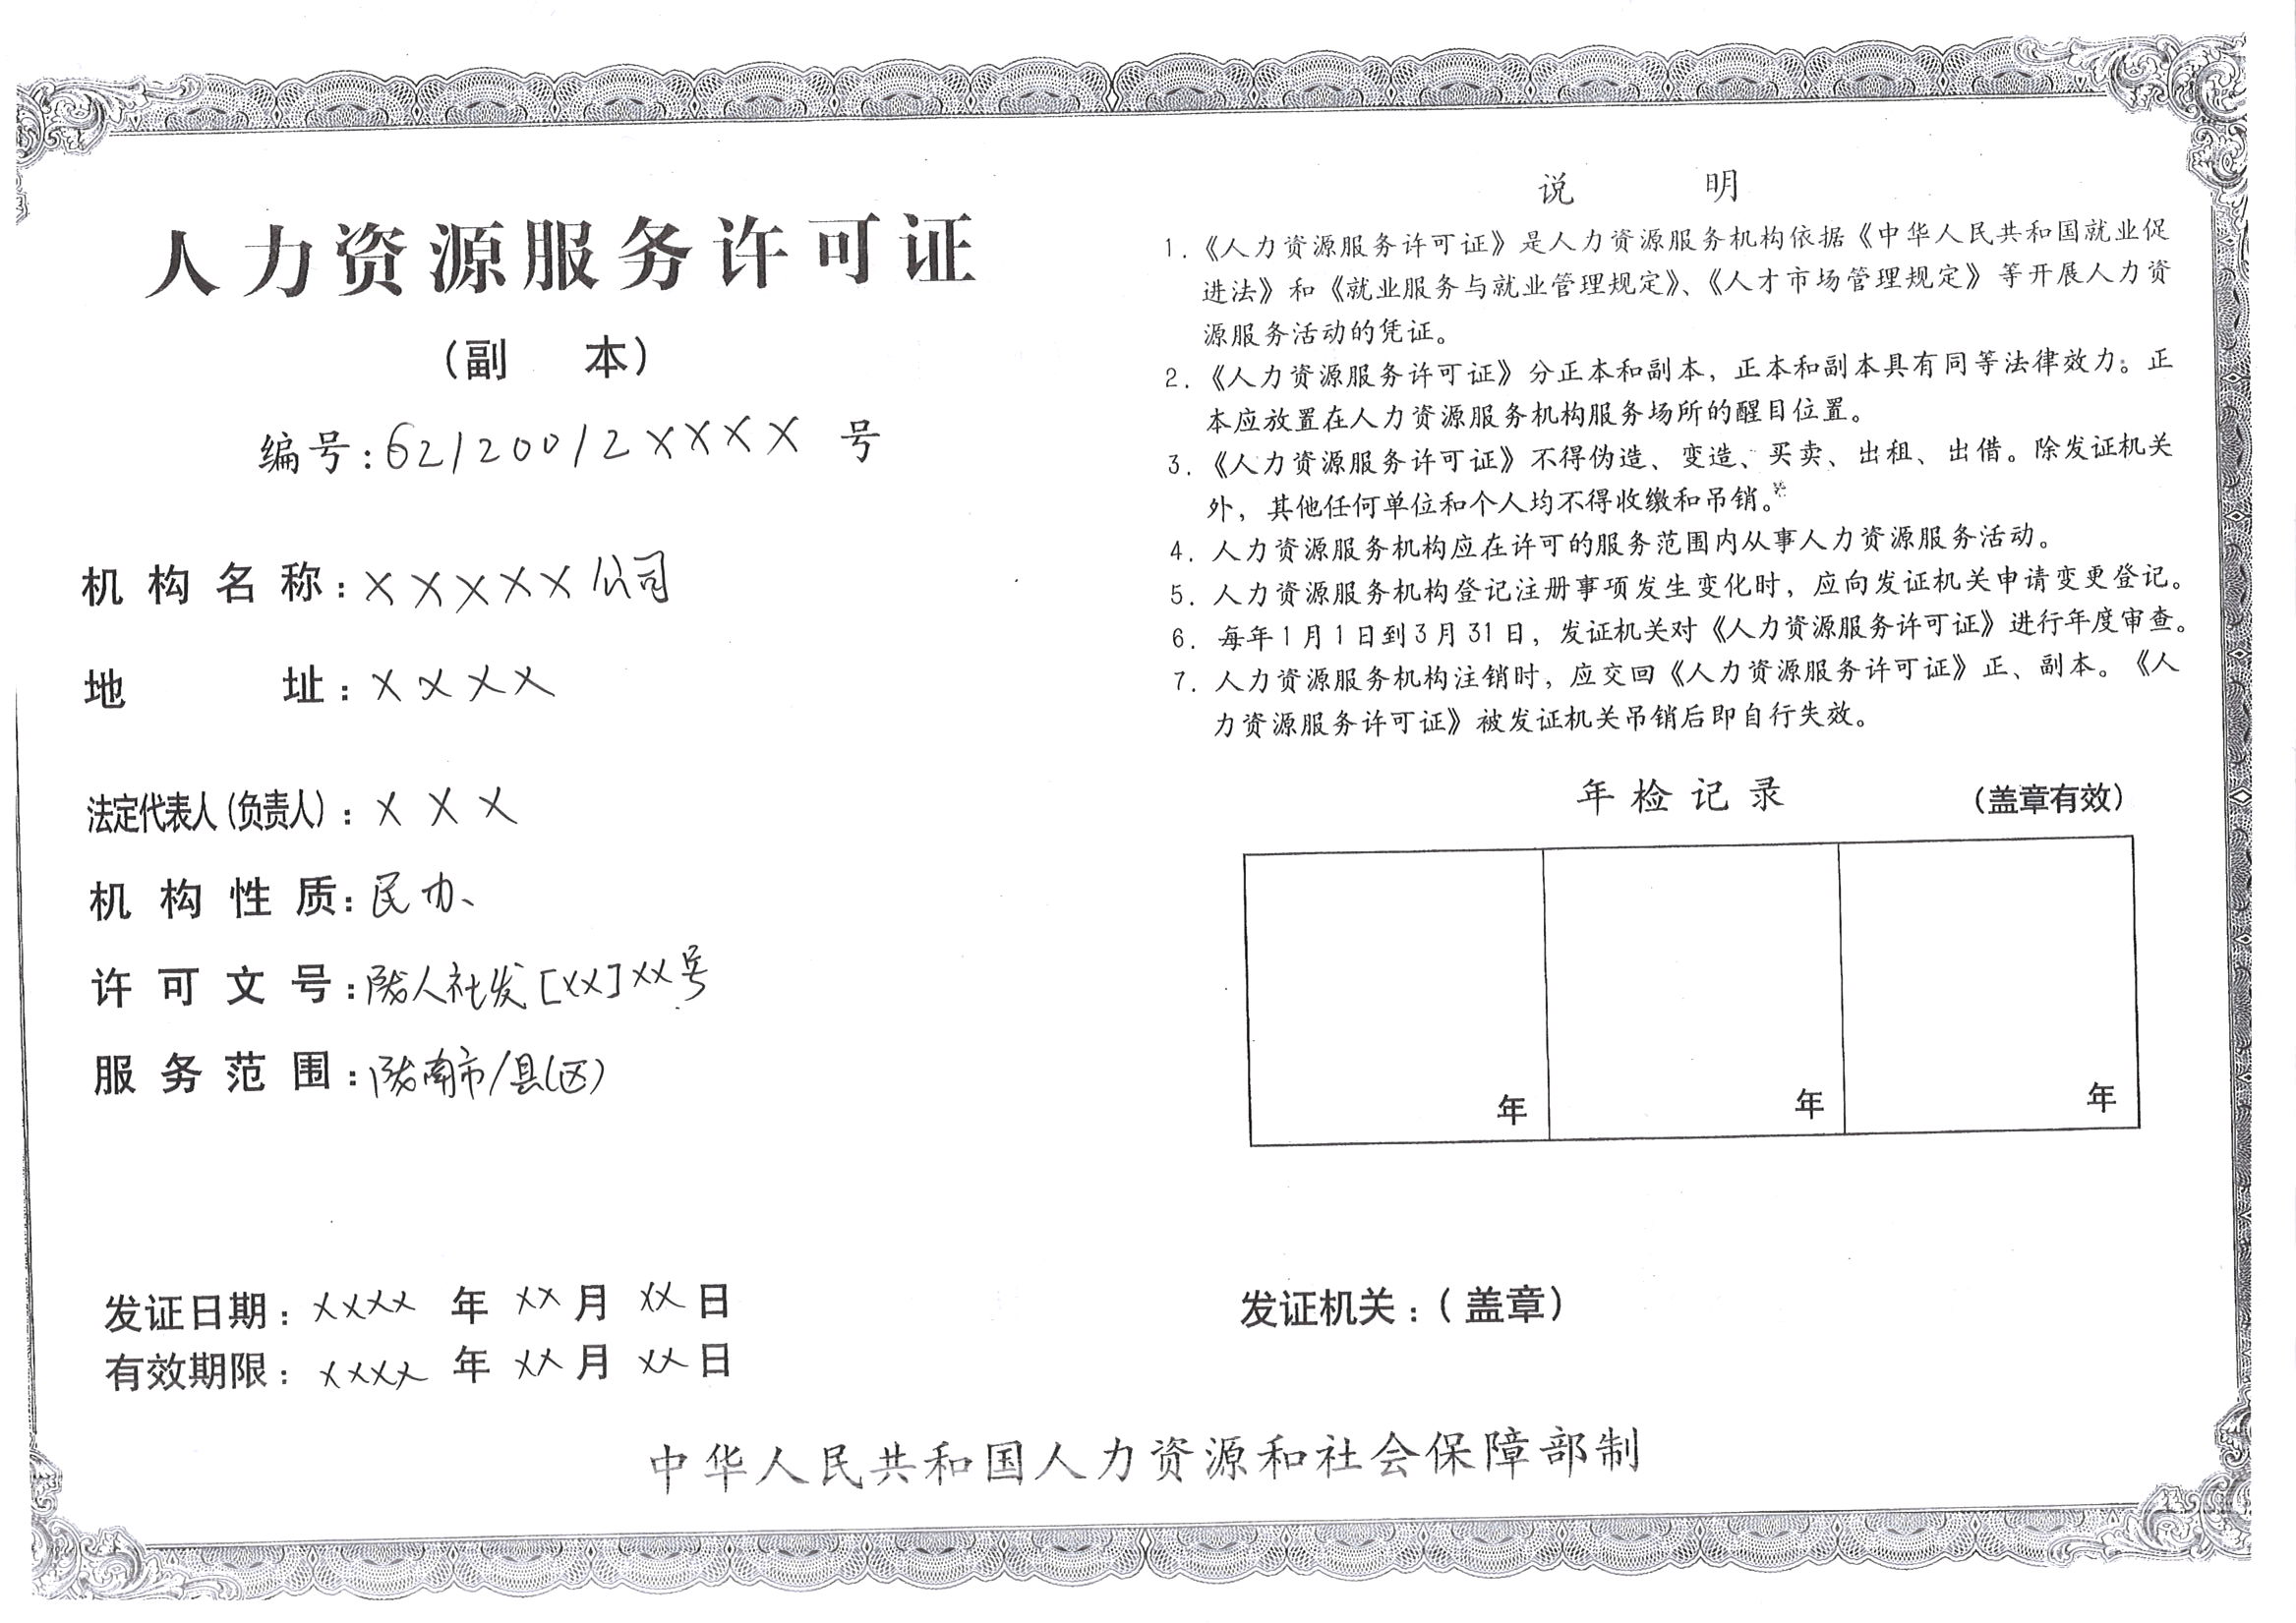 人力资源服务许可证
（副 本）
编号：62120012XXXX 号
机构名称：XXXXX公司
地址：XXXX
法定代表人（负责人）：XXX
机构性质：民办
许可文号：陇人社发[XX]XX号
服务范围：陇南市/县(区)
发证日期：XXXX 年 XX 月 XX 日
有效期限：XXXX 年 XX 月 XX 日
说 明
1.《人力资源服务许可证》是人力资源服务机构依据《中华人民共和国就业促
进法》和《就业服务与就业管理规定》、《人才市场管理规定》等开展人力资
源服务活动的凭证。
2.《人力资源服务许可证》分正本和副本，正本和副本具有同等法律效力。正
本应放置在人力资源服务机构服务场所的醒目位置。
3.《人力资源服务许可证》不得伪造、变造、买卖、出租、出借。除发证机关
外，其他任何单位和个人均不得收缴和吊销。
4. 人力资源服务机构应在许可的服务范围内从事人力资源服务活动。
5. 人力资源服务机构登记注册事项发生变化时，应向发证机关申请变更登记。
6. 每年1月1日到3月31日，发证机关对《人力资源服务许可证》进行年度审查。
7. 人力资源服务机构注销时，应交回《人力资源服务许可证》正、副本。《人
力资源服务许可证》被发证机关吊销后即自行失效。
年检记录 （盖章有效）
年 年 年
发证机关：（盖章）
中华人民共和国人力资源和社会保障部制